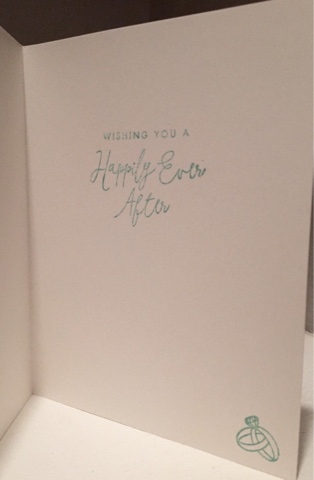 WISHING YOU A
Happily Ever
After